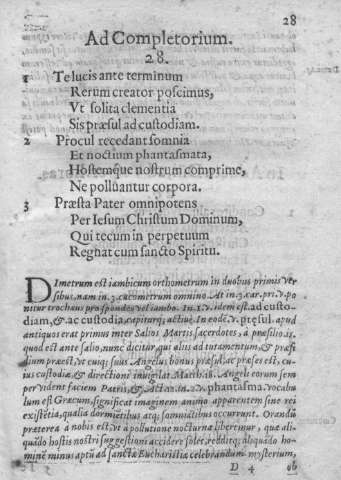 28
Ad Completorium.
28.
1 Te lucis ante terminum
Rerum creator poscimus,
Vt solita clementia
Sis præsul ad custodiam.
2 Procul recedant somnia
Et noctium phantasmata,
Hostemque nostrum comprime,
Ne polluantur corpora.
3 Præsta Pater omnipotens
Per Iesum Christum Dominum,
Qui tecum in perpetuum
Regnat cum sancto Spiritu.
Dimetrum est iambicum orthometrum in duobus primis ver
sibus, nam in 3. cacometrum omnino. At in 3. car. pri. v. po
nitur trochæus pro spondeo vel iambo. In 1. v. idem est ad custo-
diam, & ac custodia, capiturq; actiuè. In eodē v. pręsul. apud
antiquos erat primus inter Salios Martis sacerdotes, à præsilio. is.
quod est ante salio, nunc dicitur qui alijs ad iutamentum, & præsi
dium præest, vt cuiq; suus Angelus bonus præsul, ac præses est, cu-
ius custodiæ & directioni inuigilat Matth. 18. Angeli eorum sem
per vident faciem Patris, & Act. 12. in 2. v. phantasma. vocabu
lum est Græcum, significat imaginem animo apparentem sine rei
existētia, qualia dormiētibus atq; somniātibus occurrunt. Orandū
præterea à nobis est, vt à pollutione nocturna liberemur, quæ ali-
quādo hostis nostri suggestioni accidere solet, redditq; aliquādo ho-
minē minus aptū ad sanctæ Eucharistiæ celebrandum mysterium,
D 4 ob